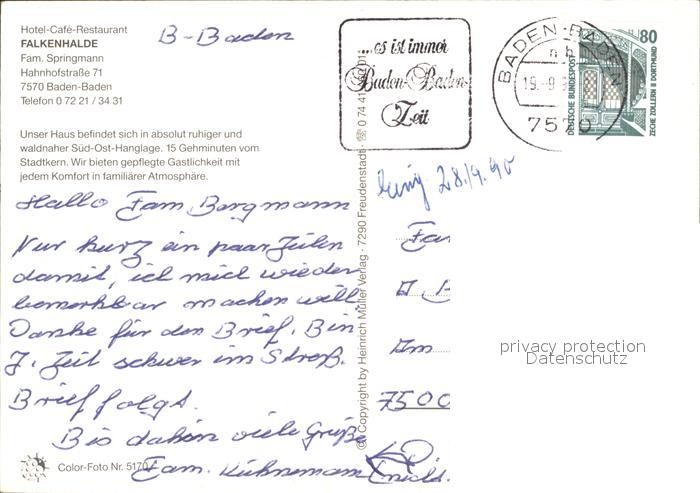 Hotel-Café-Restaurant
FALKENHALDE
Fam. Springmann
Hahnhofstraße 71
7570 Baden-Baden
Telefon 0 72 21 / 34 31
B-Baden
...es ist immer
Baden-Baden-
Zeit
BADEN-BADEN
19.-9.
80
DEUTSCHE BUNDESPOST
ZECHE ZOLLERN II DORTMUND
Unser Haus befindet sich in absolut ruhiger und
waldnaher Süd-Ost-Hanglage. 15 Gehminuten vom
Stadtkern. Wir bieten gepflegte Gastlichkeit mit
jedem Komfort in familiärer Atmosphäre.
28./9.90
Hallo Fam. Bergmann
Nur kurz ein paar Zeilen
damit, ich mich wieder
bemerkbar machen will
Danke für den Brief. Bin
z. Zeit schwer im Streß.
Brief folgt.
Bis dahin viele Grüße
Fam. Kühnemann
© Copyright by Heinrich Müller Verlag · 7290 Freudenstadt · ☎ 0 74 41
Am
7500
privacy protection
Datenschutz
Color-Foto Nr. 5170